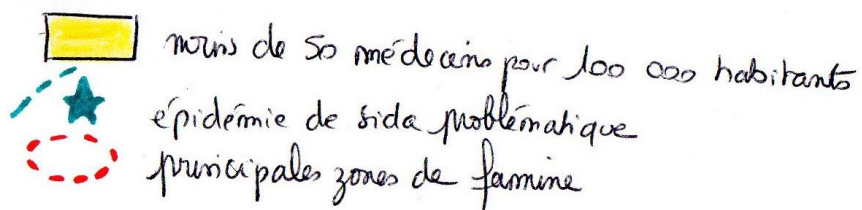 moins de 50 médecins pour 100 000 habitants
épidémie de sida problématique
principales zones de famine